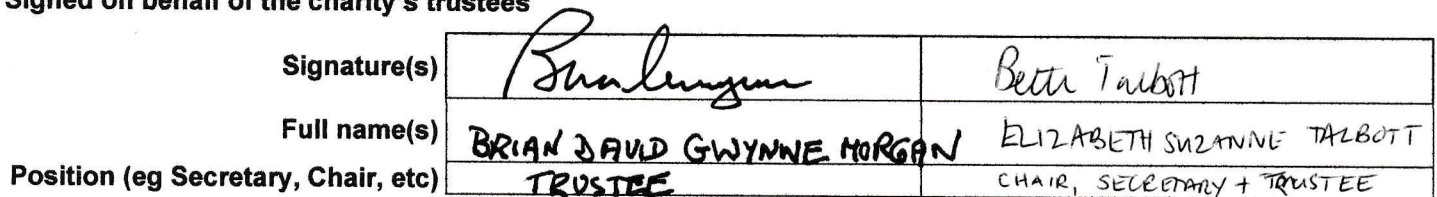 Signed on behalf of the charity's trustees
Signature(s) Beth Talbott
Full name(s) BRIAN DAVID GWYNNE MORGAN ELIZABETH SUZANNE TALBOTT
Position (eg Secretary, Chair, etc) TRUSTEE CHAIR, SECRETARY + TRUSTEE